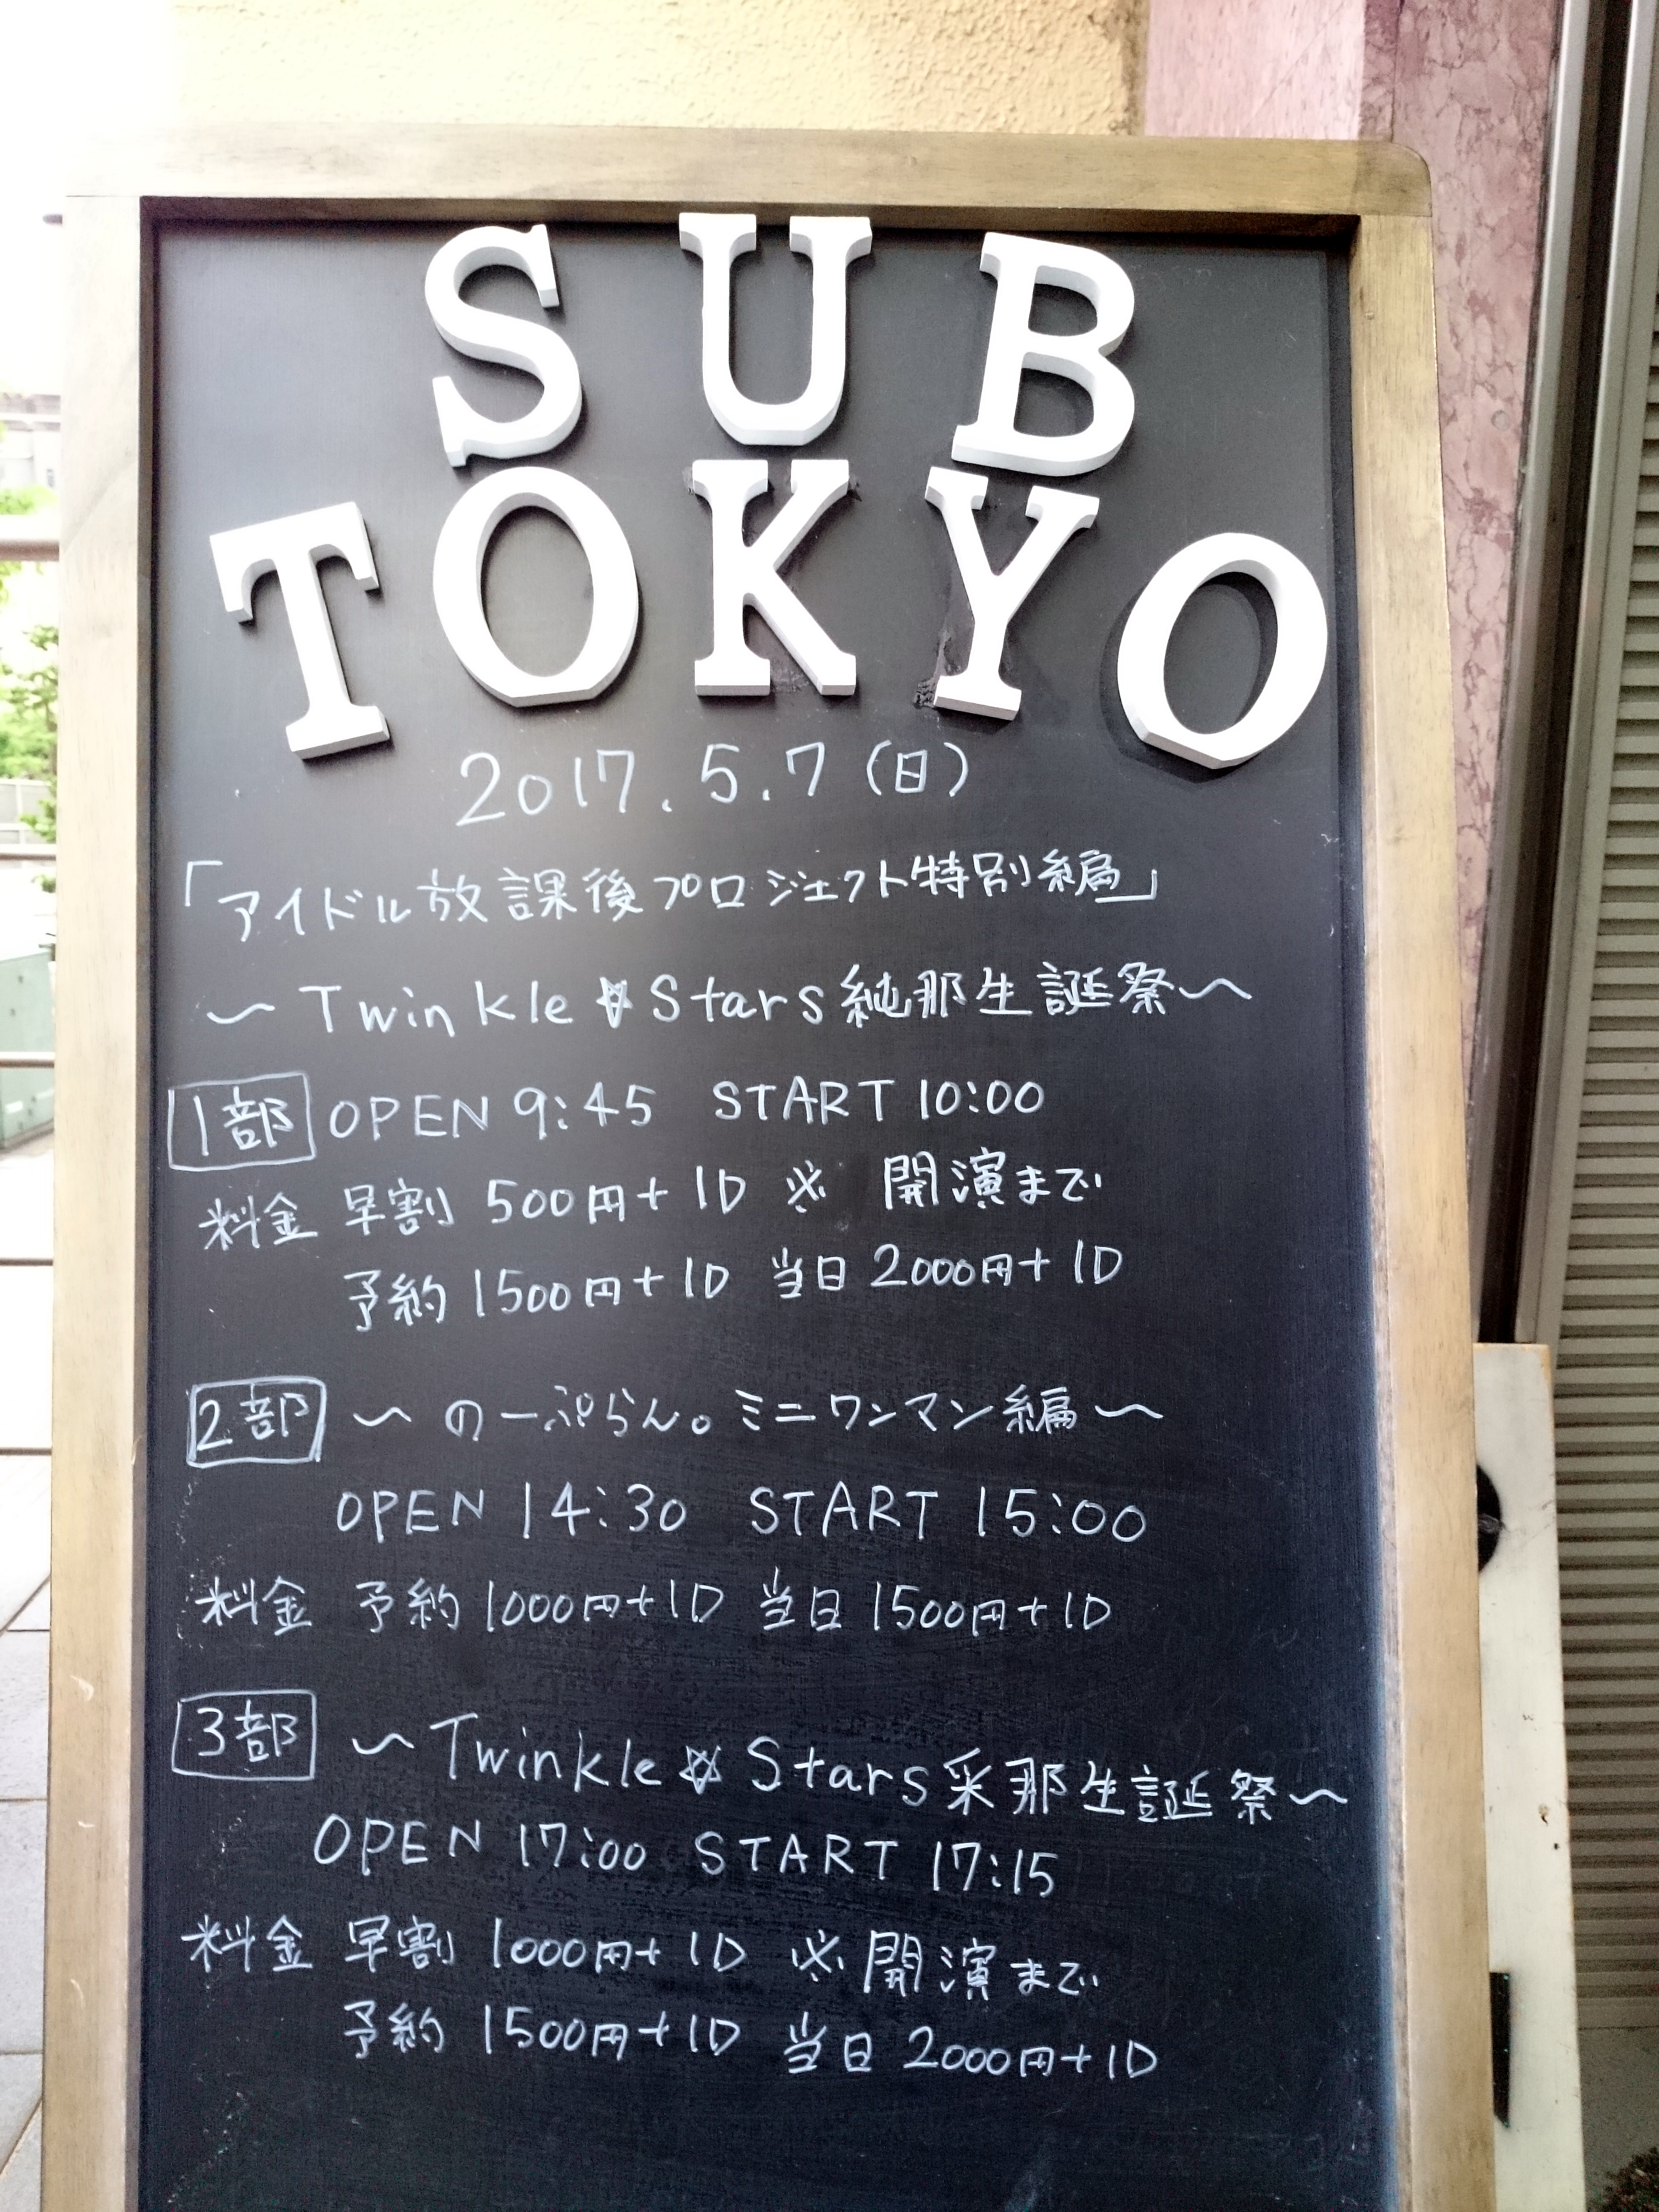 SUB
TOKYO
2017.5.7(日)
「アイドル放課後プロジェクト特別編」
〜Twinkle☆Stars純那生誕祭〜
1部 OPEN 9:45 START 10:00
料金 早割 500円+1D ※ 開演まで
予約 1500円+1D 当日 2000円+1D
2部 〜のーぷらん。ミニワンマン編〜
OPEN 14:30 START 15:00
料金 予約 1000円+1D 当日 1500円+1D
3部 〜Twinkle☆Stars采那生誕祭〜
OPEN 17:00 START 17:15
料金 早割 1000円+1D ※開演まで
予約 1500円+1D 当日 2000円+1D